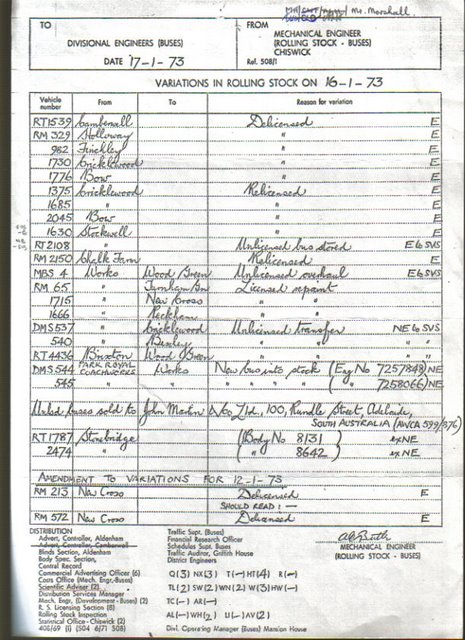 Mr. Marshall.
TO
FROM
DIVISIONAL ENGINEERS (BUSES)
MECHANICAL ENGINEER
(ROLLING STOCK - BUSES)
CHISWICK
DATE 17-1-73
Ref. 508/1
VARIATIONS IN ROLLING STOCK ON 16-1-73
Vehicle number From To Reason for variation
RT1539 Camberwell Delicensed E
RM 329 Holloway " E
982 Finchley " E
1730 Cricklewood " E
1776 Bow " E
1375 Cricklewood Relicensed E
1685 " " E
2045 Bow " E
1630 Stockwell " E
RT 2108 " Unlicensed bus stored E to SVS
RM 2150 Chalk Farm Relicensed E
MBS 4 Works Wood Green Unlicensed overhaul E to SVS
RM 65 " Turnham Gn Licensed repaint E
1715 " New Cross " " E
1666 " Peckham " " E
DMS 537 " Cricklewood Unlicensed transfer NE to SVS
540 " Bexley " " "
RT 4436 Brixton Wood Green " " "
DMS 544 PARK ROYAL COACHWORKS Works New bus into stock (Eng No 7257848) NE
545 " " " " " ( " 7258066) NE
Unltd buses sold to John Martin & Co Ltd., 100, Rundle Street, Adelaide,
SOUTH AUSTRALIA (AWCA 599/876)
RT 1787 Stonebridge (Body No 8131) ex NE
2474 " ( " 8642) ex NE
AMENDMENT TO VARIATIONS FOR 12-1-73
RM 213 New Cross Delicensed E
SHOULD READ :-
RM 572 New Cross Delicensed E
DISTRIBUTION
Advert, Controller, Aldenham
Advert, Controller, Camberwell
Blinds Section, Aldenham
Body Spec. Section,
Central Record
Commercial Advertising Officer (6)
Costs Office (Mech. Engr-Buses)
Scientific Adviser (2)
Distribution Services Manager
Mech. Engr. (Development - Buses) (2)
R. S. Licensing Section (8)
Rolling Stock Inspection
Statistical Office - Chiswick (2)
408/69 (i) (504 6/71 508)
Traffic Supt. (Buses)
Financial Research Officer
Schedules Supt. Buses
Traffic Auditor, Griffith House
District Engineers
Q(3) NX(3) T(—) HT(4) R(—)
TL(2) SW(2) WN(2) W(3) HW(—)
TC(—) AR(—)
AL(—) WH(2) U(—) AV(2)
Divl. Operating Manager (Buses) Mansion House
MECHANICAL ENGINEER
(ROLLING STOCK - BUSES)